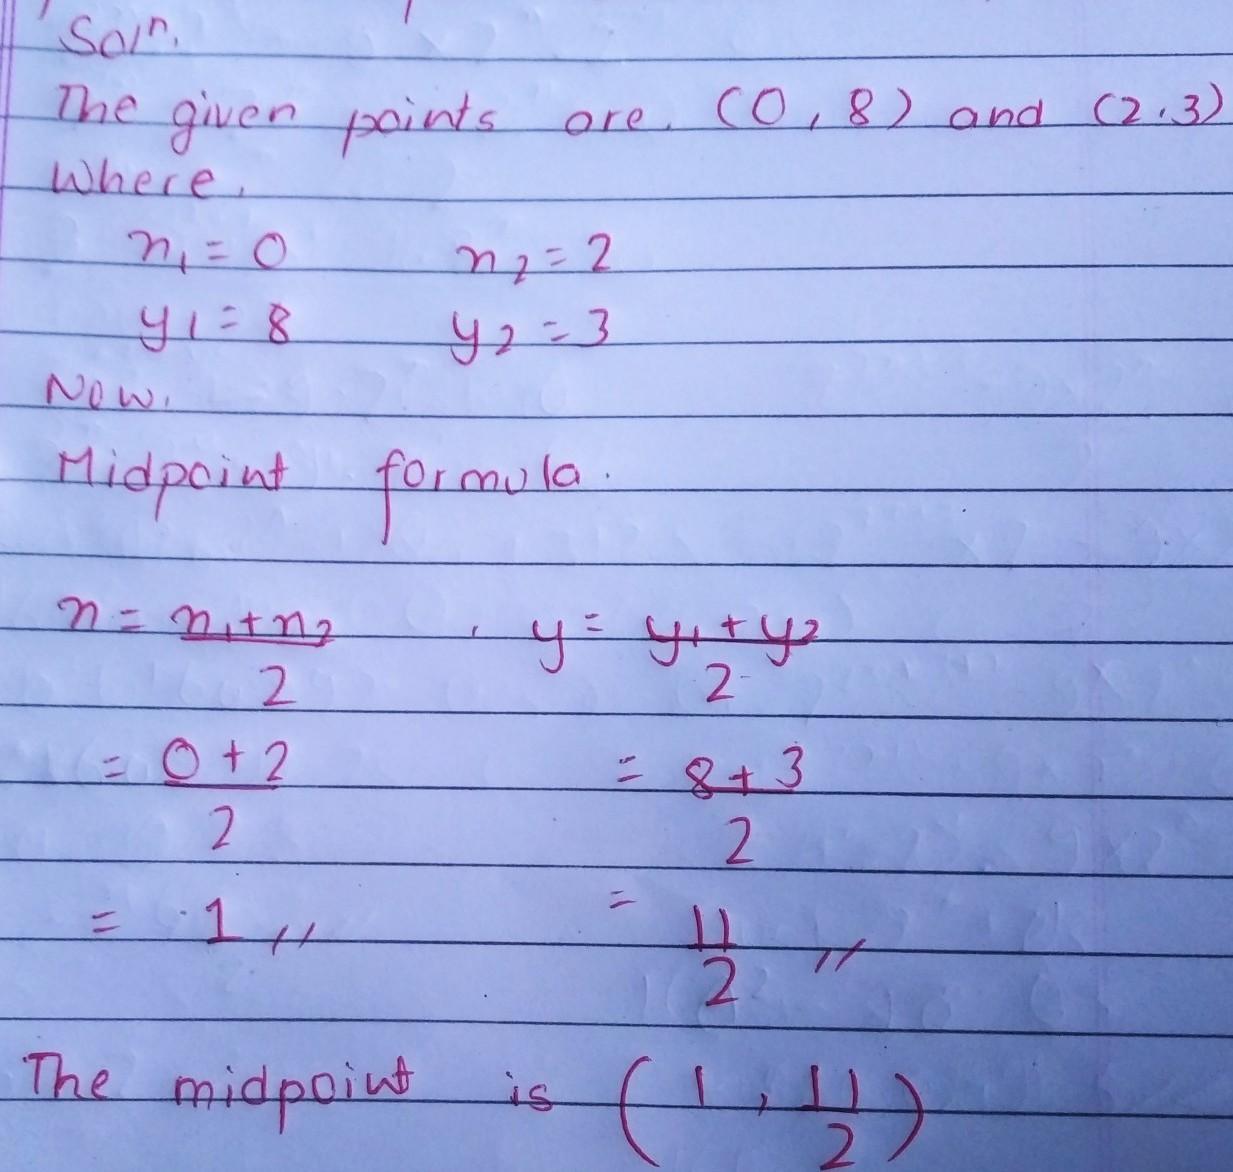 Solⁿ.
The given points are. (0, 8) and (2,3)
Where,
x₁ = 0 x₂ = 2
y₁ = 8 y₂ = 3
Now.
Midpoint formula.
x = x₁ + x₂ / 2 , y = y₁ + y₂ / 2
= 0 + 2 / 2 = 8 + 3 / 2
= 1 // = 11 / 2 //
The midpoint is (1, 11/2)